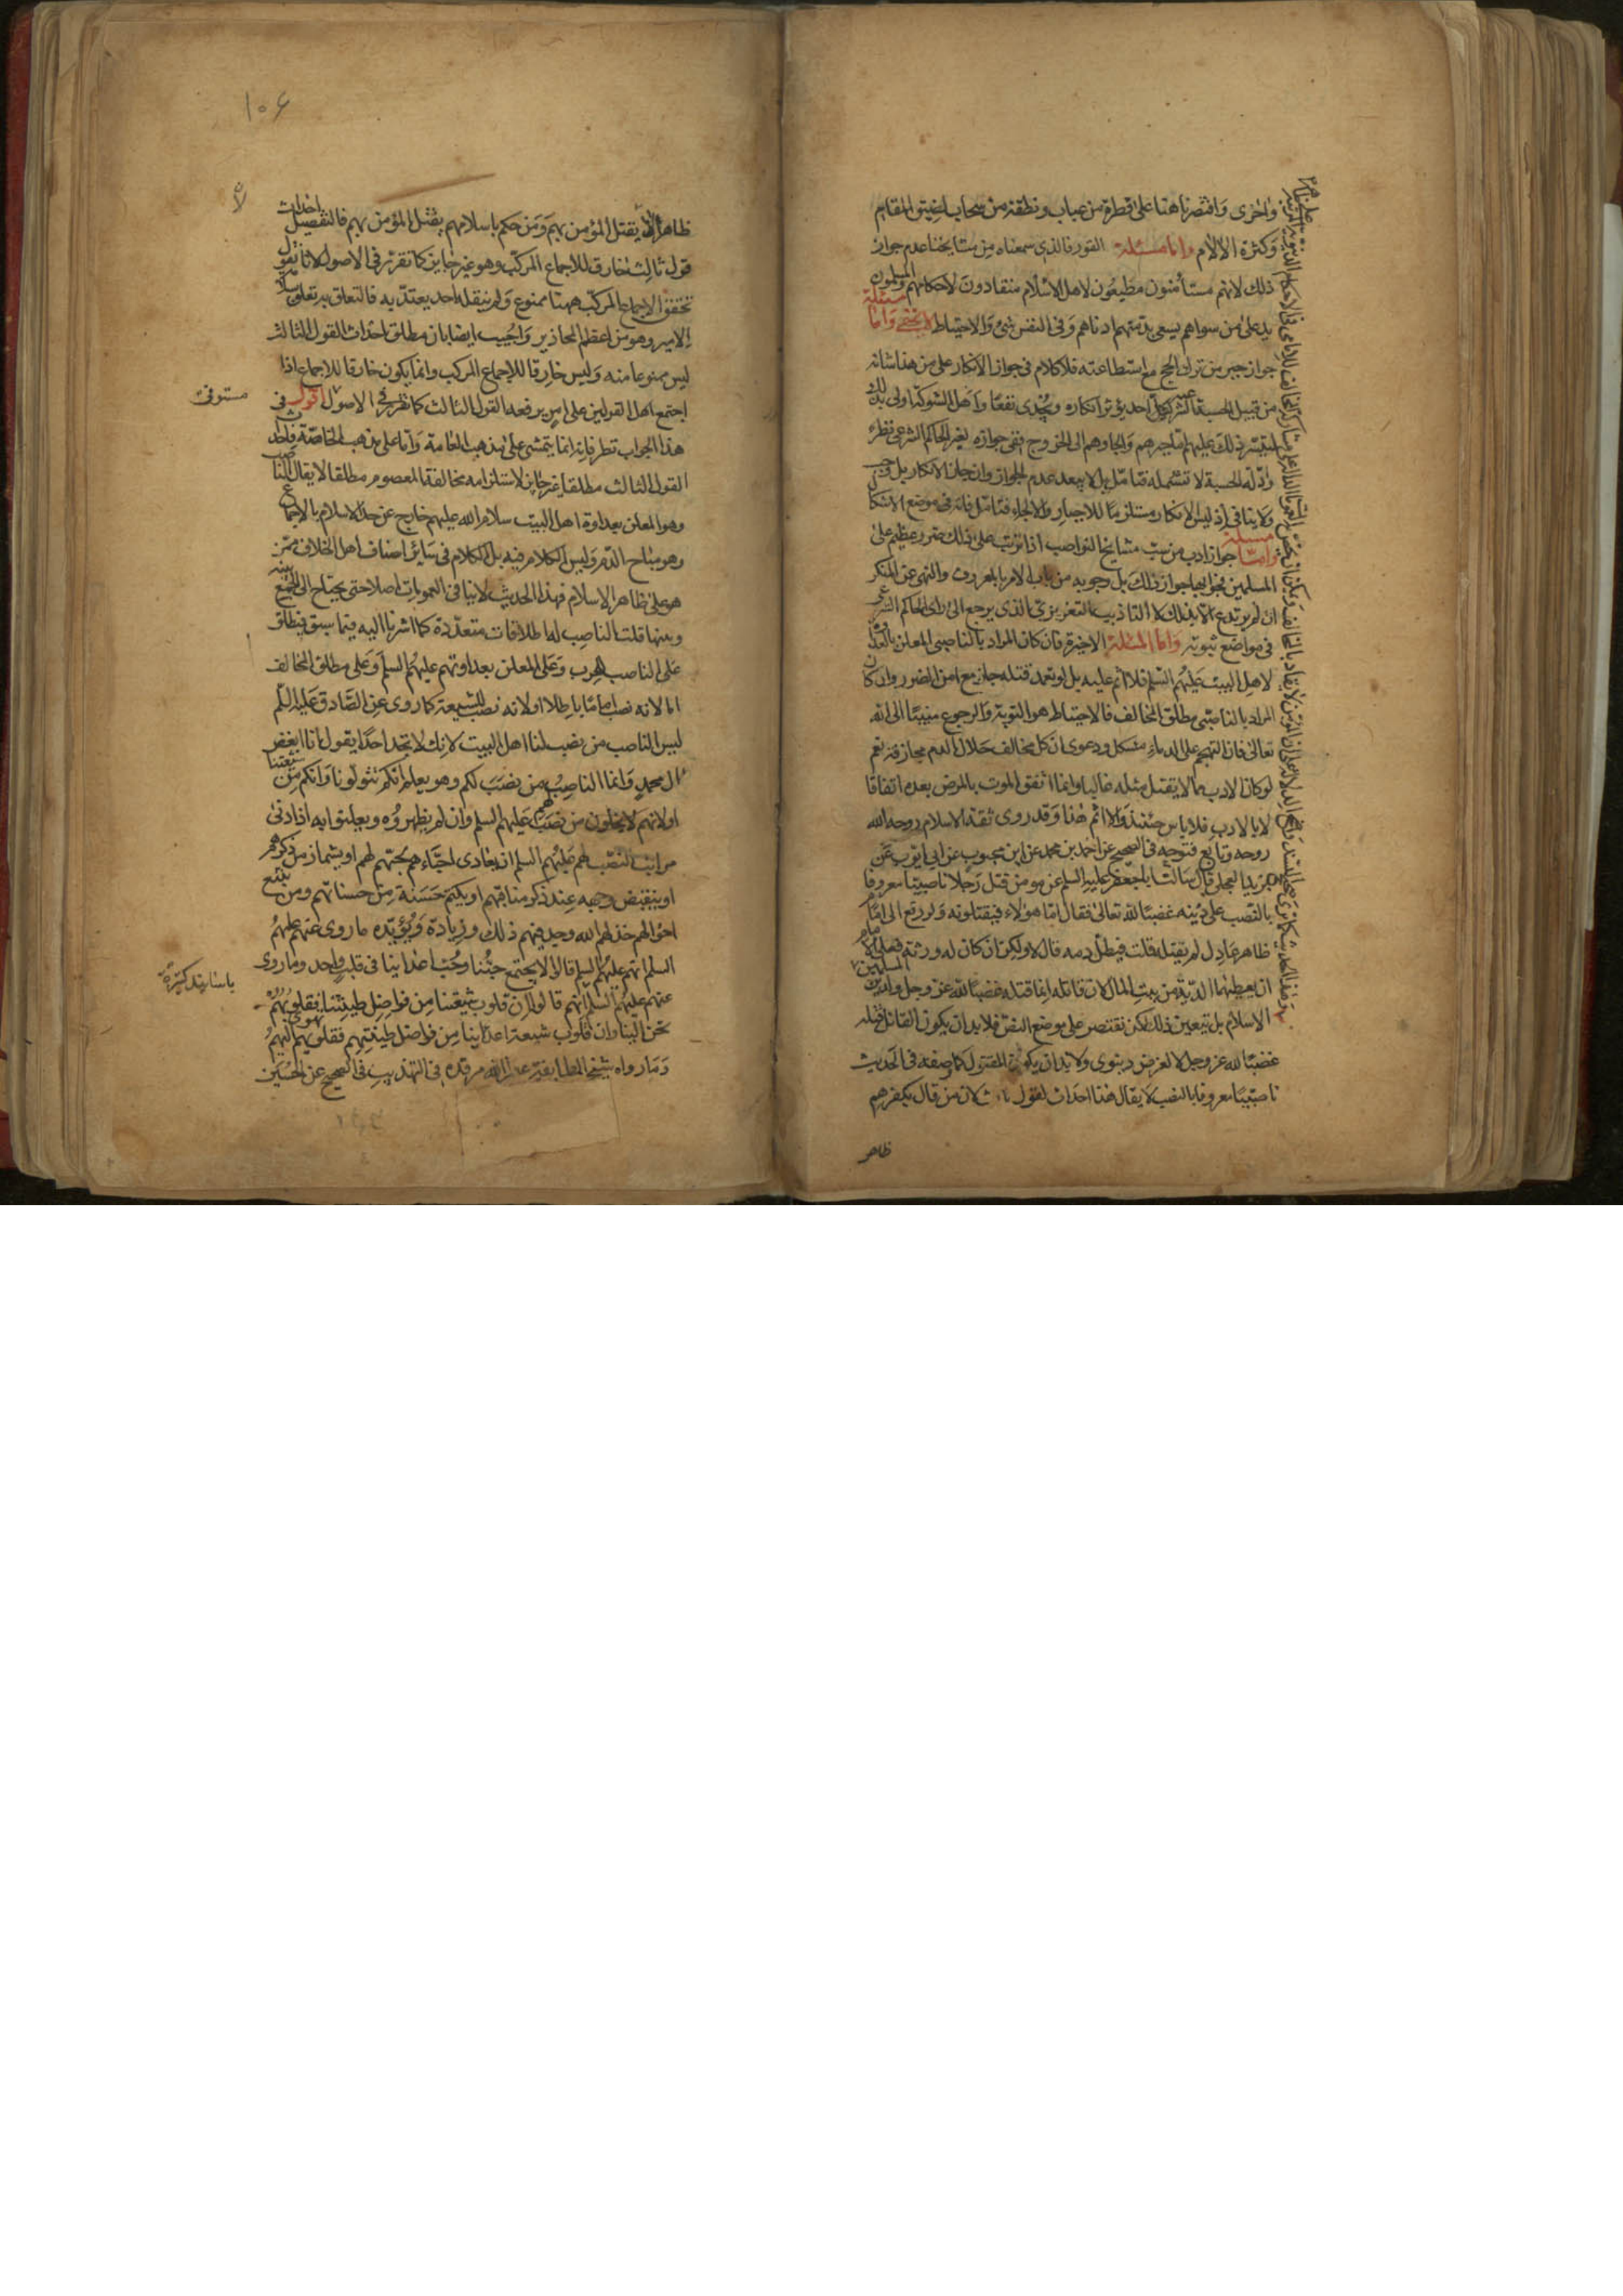 واخرى واقتصرنا هنا على قطرة من عباب ونطفة من سحاب لضيق المقام
وكثرة الالام واما مسئلة الفور فالذى سمعناه من مشايخنا عدم جواز
ذلك لانهم مستأمنون مطيعون لاهل الاسلام منقادون لاحكامهم والمسلمون
يد على من سواهم يسعى بذمتهم ادناهم وفى النفس شئ والاحتياط لا يخفى واما مسئلة
جواز جبر من ترك الحج مع استطاعته فلا كلام فى جواز الانكار على من هذا شانه
من قبيل الحسبة لكل احد يؤثر انكاره ويجدى نفعا واهل الشوكة اولى بذلك
ذلك عليهم اما جبرهم والجاؤهم الى الخروج ففى جوازه لغير الحاكم الشرعى نظر
وادلة الحسبة لا تشمله فتامل بل لا يبعد عدم الجواز وان جاز الانكار بل وجب
ولا ينافى اذ ليس الانكار مستلزما للاجبار والالجاء فتامل فانه فى موضع الاشكال
واما مسئلة جواز ادب من سب مشايخنا النواصب اذا ترتب على ذلك ضرر عظيم على
المسلمين جواز ذلك بل وجوبه من باب الامر بالمعروف والنهى عن المنكر
ان لم يرتدع الا بذلك التاديب التعزيرى الذى يرجع الى راى الحاكم الشرعى
فى مواضع ثبوته واما المسئلة الاخيرة فان كان المراد بالناصبى المعلن بالعداوة
لاهل البيت عليهم السلم فلا اثم عليه بل لو تعمد قتله جاز مع امن الضرر وان كان
المراد بالناصبى مطلق المخالف فالاحتياط هو التوبة والرجوع منيبا الى الله
تعالى فان التهجم على الدماء مشكل ودعوى ان كل مخالف حلال الدم مجازفة نعم
لو كان الادب مما لا يقتل مثله غالبا وانما اتفق الموت بالمرض بعده اتفاقا
لا بالادب فلا باس حينئذ ولا اثم هنا وقد روى ثقة الاسلام روح الله
روحه وتابع فتوحه فى الصحيح عن احمد بن محمد عن ابن محبوب عن ابى ايوب عن
بريد العجلى قال سالت ابا جعفر عليه السلم عن مومن قتل رجلا ناصبيا معروفا
بالنصب على دينه غضبا لله تعالى فقال اما هؤلاء فيقتلونه ولو رفع الى امام
ظاهر عادل لم يقتله قلت فيطل دمه قال لا ولكن ان كان له ورثة فعلى الامام
ان يعطيهم الدية من بيت المال لان قاتله انما قتله غضبا لله عز وجل ولدين المسلمين
الاسلام بل يتعين ذلك لكن نقتصر على موضع النص فلا بد ان يكون القاتل قتله
غضبا لله عز وجل لا لغرض دنيوى ولا بد ان يكون المقتول كما وصفه فى الحديث
ناصبيا معروفا بالنصب لا يقال هذا احداث لقول ثالث لان من قال بكفرهم
ظاهر
١٠٦
ظاهرا يقتل المؤمن بهم ومن حكم باسلامهم يقتل المؤمن بهم فالتفصيل احداث
قول ثالث خارق للاجماع المركب وهو غير جايز كما تقرر فى الاصول لانا نقول
تحقق الاجماع المركب ههنا ممنوع ولم ينقله احد يعتد به فالتعلق به تعلق
الامير وهو من اعظم المحاذير واجيب ايضا بان مطلق احداث القول الثالث
ليس ممنوعا منه وليس خارقا للاجماع المركب وانما يكون خارقا للاجماع اذا
اجتمع اهل القولين على امر يرفعه القول الثالث كما تقرر فى الاصول اقول فى
مستوفى
هذا الجواب نظر فانه انما يتمشى على مذهب العامة واما على مذهب الخاصة فاحداث
القول الثالث مطلقا غير جايز لاستلزامه مخالفة المعصوم مطلقا لا يقال الناصب
وهو المعلن بعداوة اهل البيت سلام الله عليهم خارج عن حد الاسلام بالاجماع
وهو مباح الدم وليس الكلام فيه بل الكلام فى سائر اصناف اهل الخلاف ممن
هو على ظاهر الاسلام فهذا الحديث لا ينافى العمومات اصلا حتى يحتاج الى الجمع بينه
وبينها قلت الناصب له اطلاقات متعددة كما اشرنا اليه فيما سبق فيطلق
على الناصب الحرب وعلى المعلن بعداوتهم عليهم السلم وعلى مطلق المخالف
اما لانه نصب اماما باطلا او لانه نصب للشيعة كما روى عن الصادق عليه السلم
ليس الناصب من نصب لنا اهل البيت لانك لا تجد احدا يقول انا ابغض
ال محمد وانما الناصب من نصب لكم وهو يعلم انكم تتولونا وانكم من شيعتنا
او لانهم لا يخلون من نصب لهم عليهم السلم وان لم يظهروه ويعلنوا به اذ ادنى
مراتب النصب لهم عليهم السلم ان يعادى احباءهم بحبهم لهم او يشماز من ذكرهم
او ينقبض وجهه عند ذكر مناقبهم او يكتم حسنة من حسناتهم ومن تتبع
احوالهم خذلهم الله وجد فيهم ذلك وزيادة ويؤيده ما روى عنهم عليهم
السلم انهم عليهم السلم قالوا لا يجتمع حبنا وحب اعدائنا فى قلب واحد وما روى
باسانيد كثيرة
عنهم عليهم السلم انهم قالوا ان قلوب شيعتنا من فواضل طينتنا فقلوبهم
تحن الينا وان قلوب شيعة اعدائنا من فواضل طينتهم فقلوبهم تهوى اليهم
ومما رواه شيخ الطايفة عطر الله مرقده فى التهذيب فى الصحيح عن الحسين